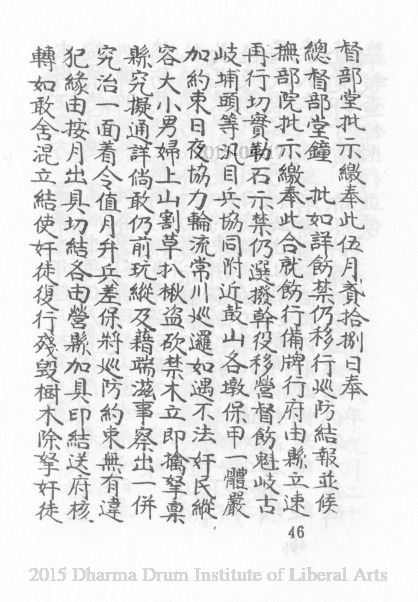 督部堂批示繳奉此伍月貳拾捌日奉
總督部堂鐘　批如詳飭禁仍移行巡防結報並候
撫部院批示繳奉此合就飭行備牌行府由縣立速
再行切實勒石示禁仍選撥幹役移營督飭魁岐古
岐埔頭等汛目兵協同附近鼓山各墩保甲一體嚴
加約束日夜協力輪流常川巡邏如遇不法奸民縱
容大小男婦上山割草扒楸盜砍禁木立即擒拏稟
縣究擬通詳倘敢仍前玩縱及藉端滋事察出一併
究治一面着令值月弁兵差保將巡防約束無有違
犯緣由按月出具切結各由營縣加具印結送府核
轉如敢舍混立結使奸徒復行殘毀樹木除拏奸徒
46
2015 Dharma Drum Institute of Liberal Arts